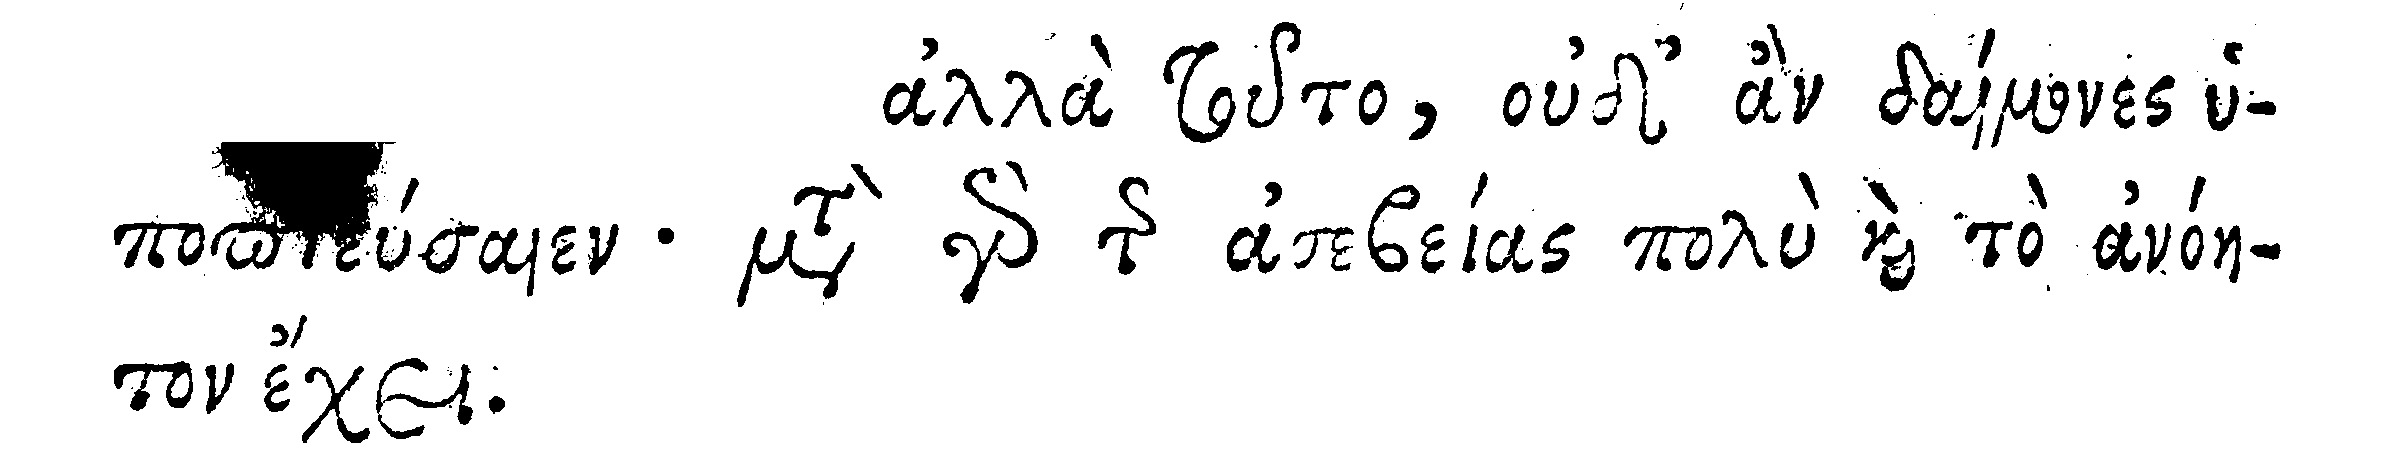 ἀλλὰ τοῦτο, οὐδ' ἂν δαίμονες ὑ-
ποπτεύσαιεν· μετὰ γὰρ τῆς ἀσεβείας πολὺ καὶ τὸ ἀνόη-
τον ἔχει.